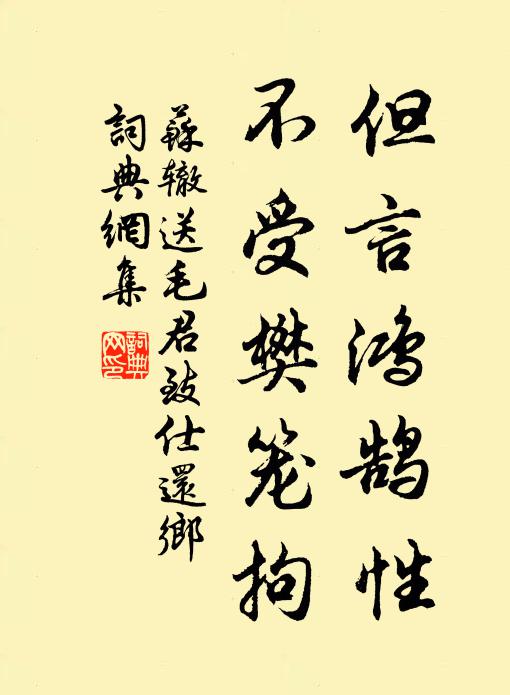 但言鸿鹄性
不受樊笼拘
蘇辙送毛君致仕還鄉
詞典網集
詞典网印